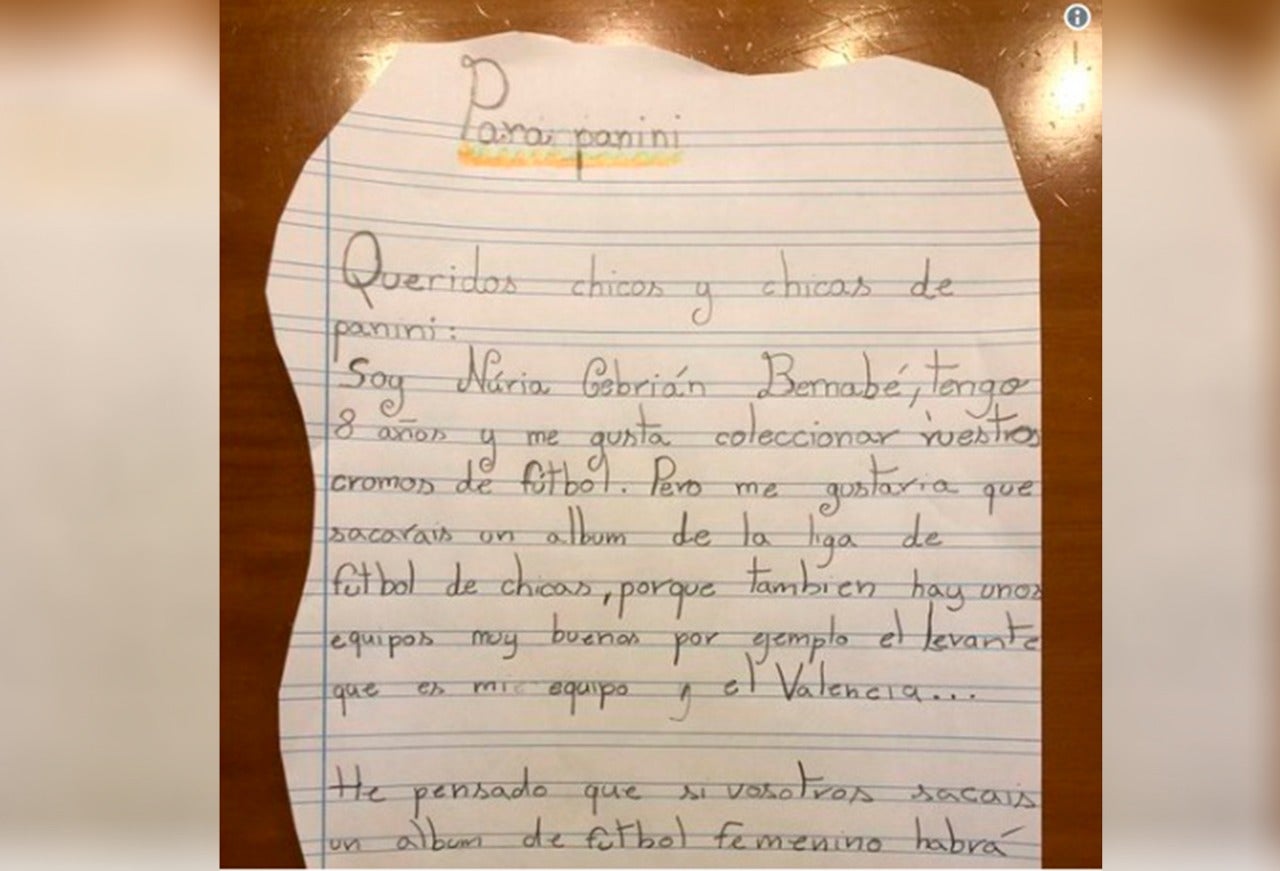 Para panini
Queridos chicos y chicas de
panini:
Soy Núria Cebrián Bernabé, tengo
8 años y me gusta coleccionar vuestros
cromos de fútbol. Pero me gustaria que
sacarais un album de la liga de
fútbol de chicas, porque tambien hay unos
equipos muy buenos por ejemplo el levante
que es mi equipo y el Valencia...
He pensado que si vosotros sacais
un album de fútbol femenino habrá